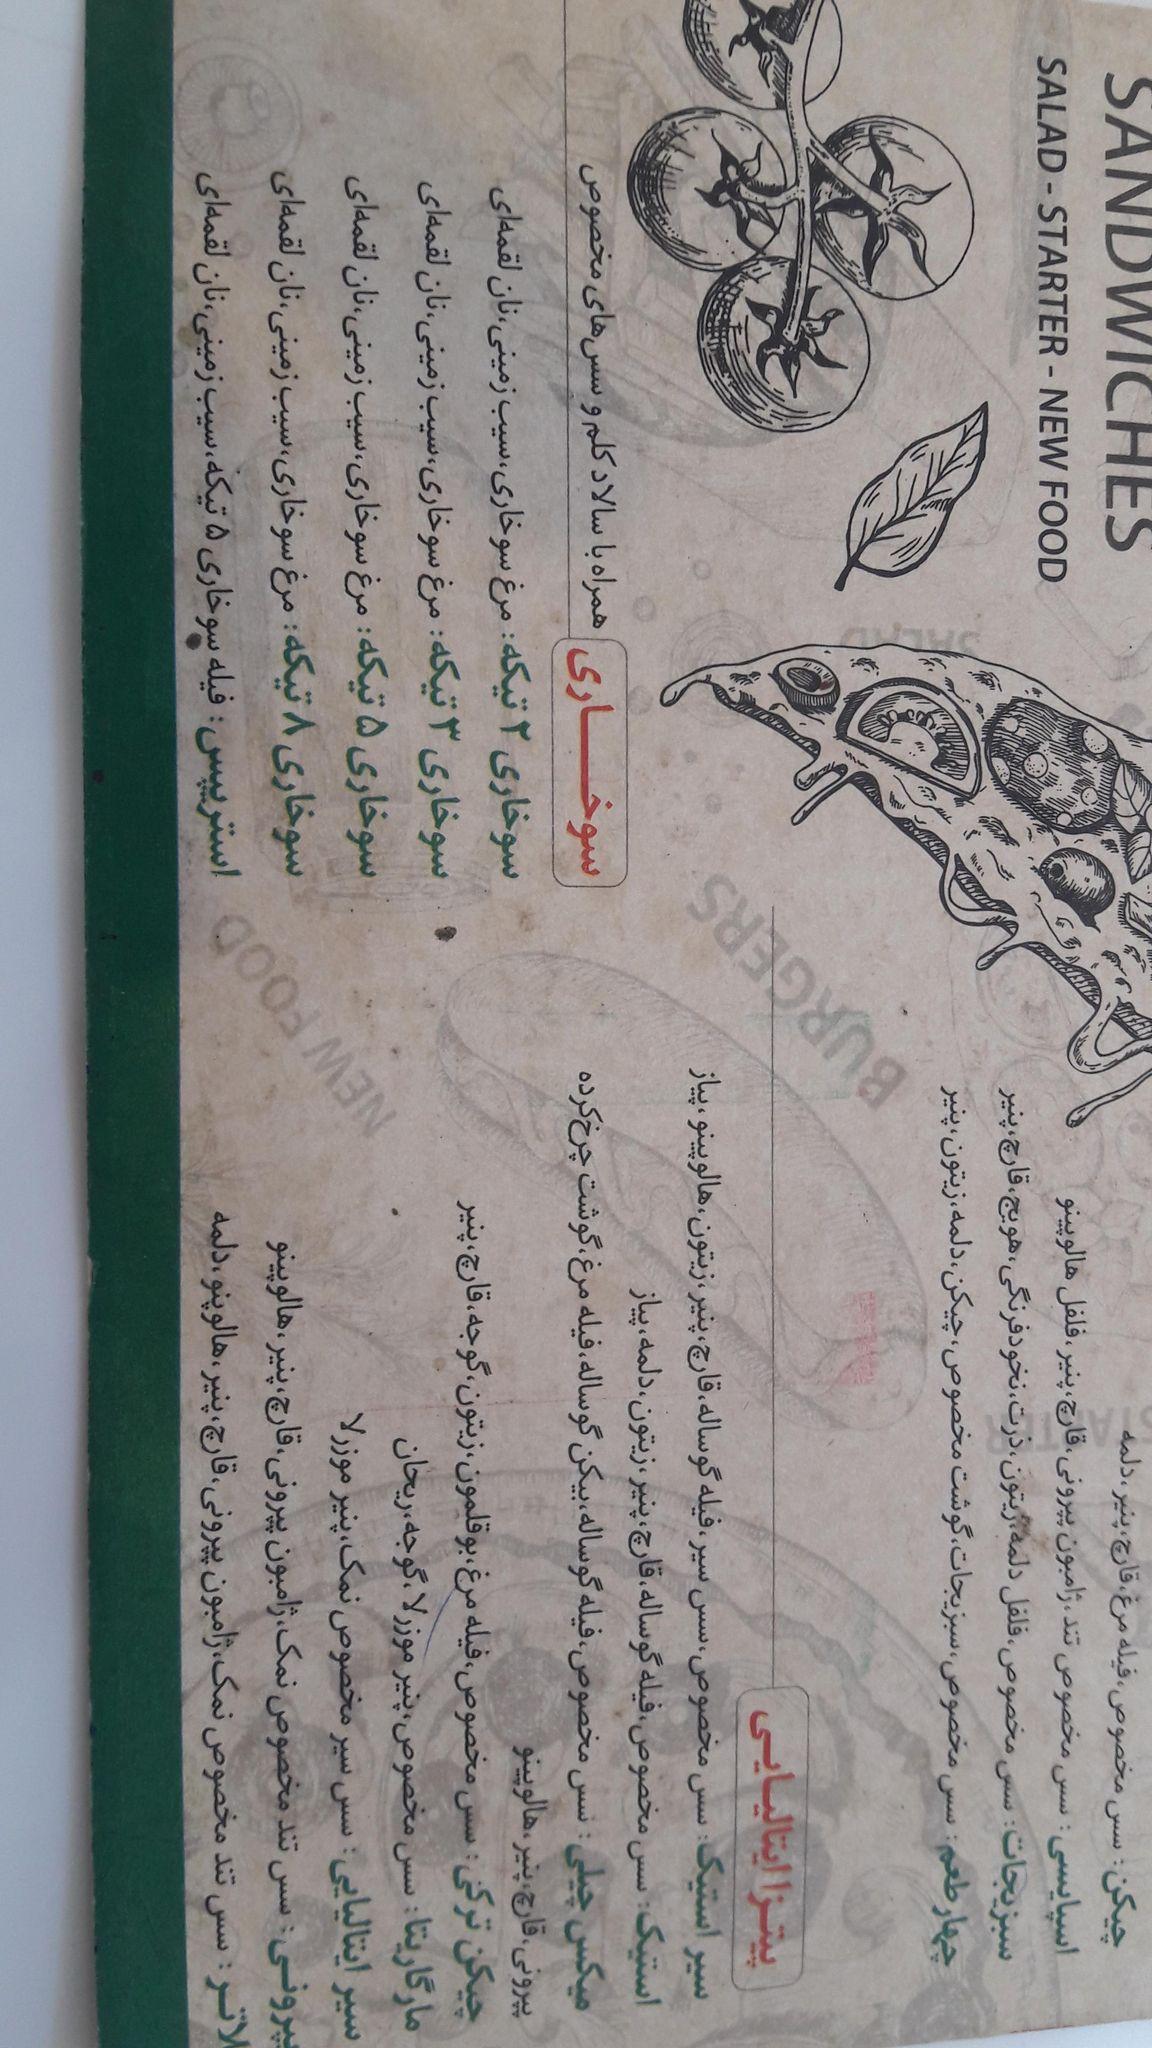 SANDWICHES
SALAD - STARTER - NEW FOOD
چیکن: سس مخصوص، فیله مرغ، قارچ، پنیر، دلمه
اسپایسی: سس مخصوص تند، ژامبون پپرونی، قارچ، پنیر، فلفل هالوپینو
سبزیجات: سس مخصوص، فلفل دلمه، زیتون، ذرت، نخودفرنگی، هویج، قارچ، پنیر
چهارطعم: سس مخصوص، سبزیجات، گوشت مخصوص، چیکن، دلمه، زیتون، پنیر
پیتزا ایتالیایی
سیر استیک: سس مخصوص، سس سیر، فیله گوساله، قارچ، پنیر، زیتون، هالوپینو، پیاز
استیک: سس مخصوص، فیله گوساله، قارچ، پنیر، زیتون، دلمه، پیاز
میکس چیلی: سس مخصوص، فیله گوساله، بیکن گوساله، فیله مرغ، گوشت چرخ‌کرده
پپرونی، قارچ، پنیر، هالوپینو
چیکن ترکی: سس مخصوص، فیله مرغ، بوقلمون، زیتون، گوجه، قارچ، پنیر
مارگاریتا: سس مخصوص، پنیر موزرلا، گوجه، ریحان
سیر ایتالیایی: سس سیر مخصوص نمک، پنیر موزرلا
پپرونی: سس تند مخصوص نمک، ژامبون پپرونی، قارچ، پنیر، هالوپینو
لاتر: سس تند مخصوص نمک، ژامبون پپرونی، قارچ، پنیر، هالوپنو، دلمه
سوخاری
همراه با سالاد کلم و سس‌های مخصوص
سوخاری ۲ تیکه: مرغ سوخاری، سیب زمینی، نان لقمه‌ای
سوخاری ۳ تیکه: مرغ سوخاری، سیب زمینی، نان لقمه‌ای
سوخاری ۵ تیکه: مرغ سوخاری، سیب زمینی، نان لقمه‌ای
سوخاری ۸ تیکه: مرغ سوخاری، سیب زمینی، نان لقمه‌ای
استریپس: فیله سوخاری ۵ تیکه، سیب زمینی، نان لقمه‌ای
SALAD
BURGERS
NEW FOOD
STARTER